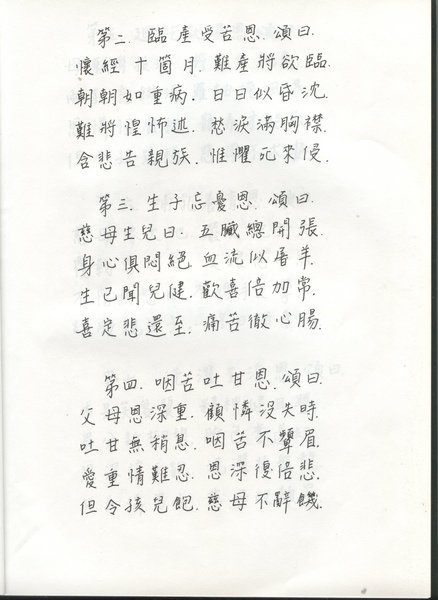 第二. 臨產受苦恩. 頌曰.
懷經十箇月. 難產將欲臨.
朝朝如重病. 日日似昏沈.
難將惶怖述. 愁淚滿胸襟.
含悲告親族. 惟懼死來侵.
第三. 生子忘憂恩. 頌曰.
慈母生兒日. 五臟總開張.
身心俱悶絕. 血流似屠羊.
生已聞兒健. 歡喜倍加常.
喜定悲還至. 痛苦徹心腸.
第四. 咽苦吐甘恩. 頌曰.
父母恩深重. 顧憐沒失時.
吐甘無稍息. 咽苦不顰眉.
愛重情難忍. 恩深復倍悲.
但令孩兒飽. 慈母不辭饑.